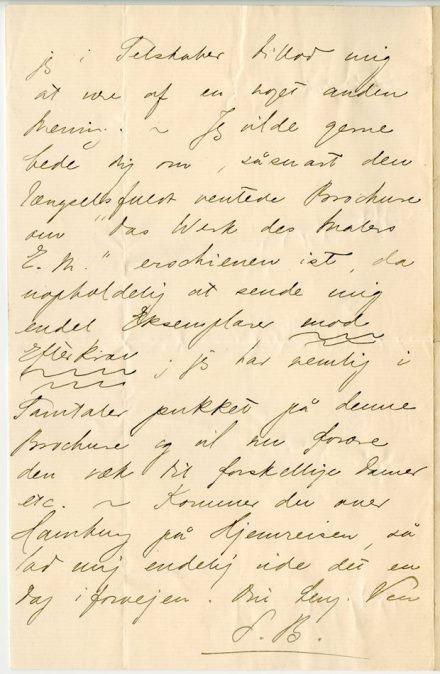 jeg i Selskaber tillod mig
at være af en noget anden
Mening. ~ Jeg vilde gerne
bede dig om, såsnart den
længselsfuldt ventede Brochure
om "Das Werk des Malers
E. M." erschienen ist, da
uopholdelig at sende mig
endel Eksemplarer mod
Efterkrav; jeg har nemlig i
Samtaler pukket på denne
Brochure og vil nu forære
den væk til forskellige Damer
etc. ~ Kommer du over
Hamburg på Hjemreisen, så
lad mig endelig vide det en
Dag iforvejen. Din heng. Ven